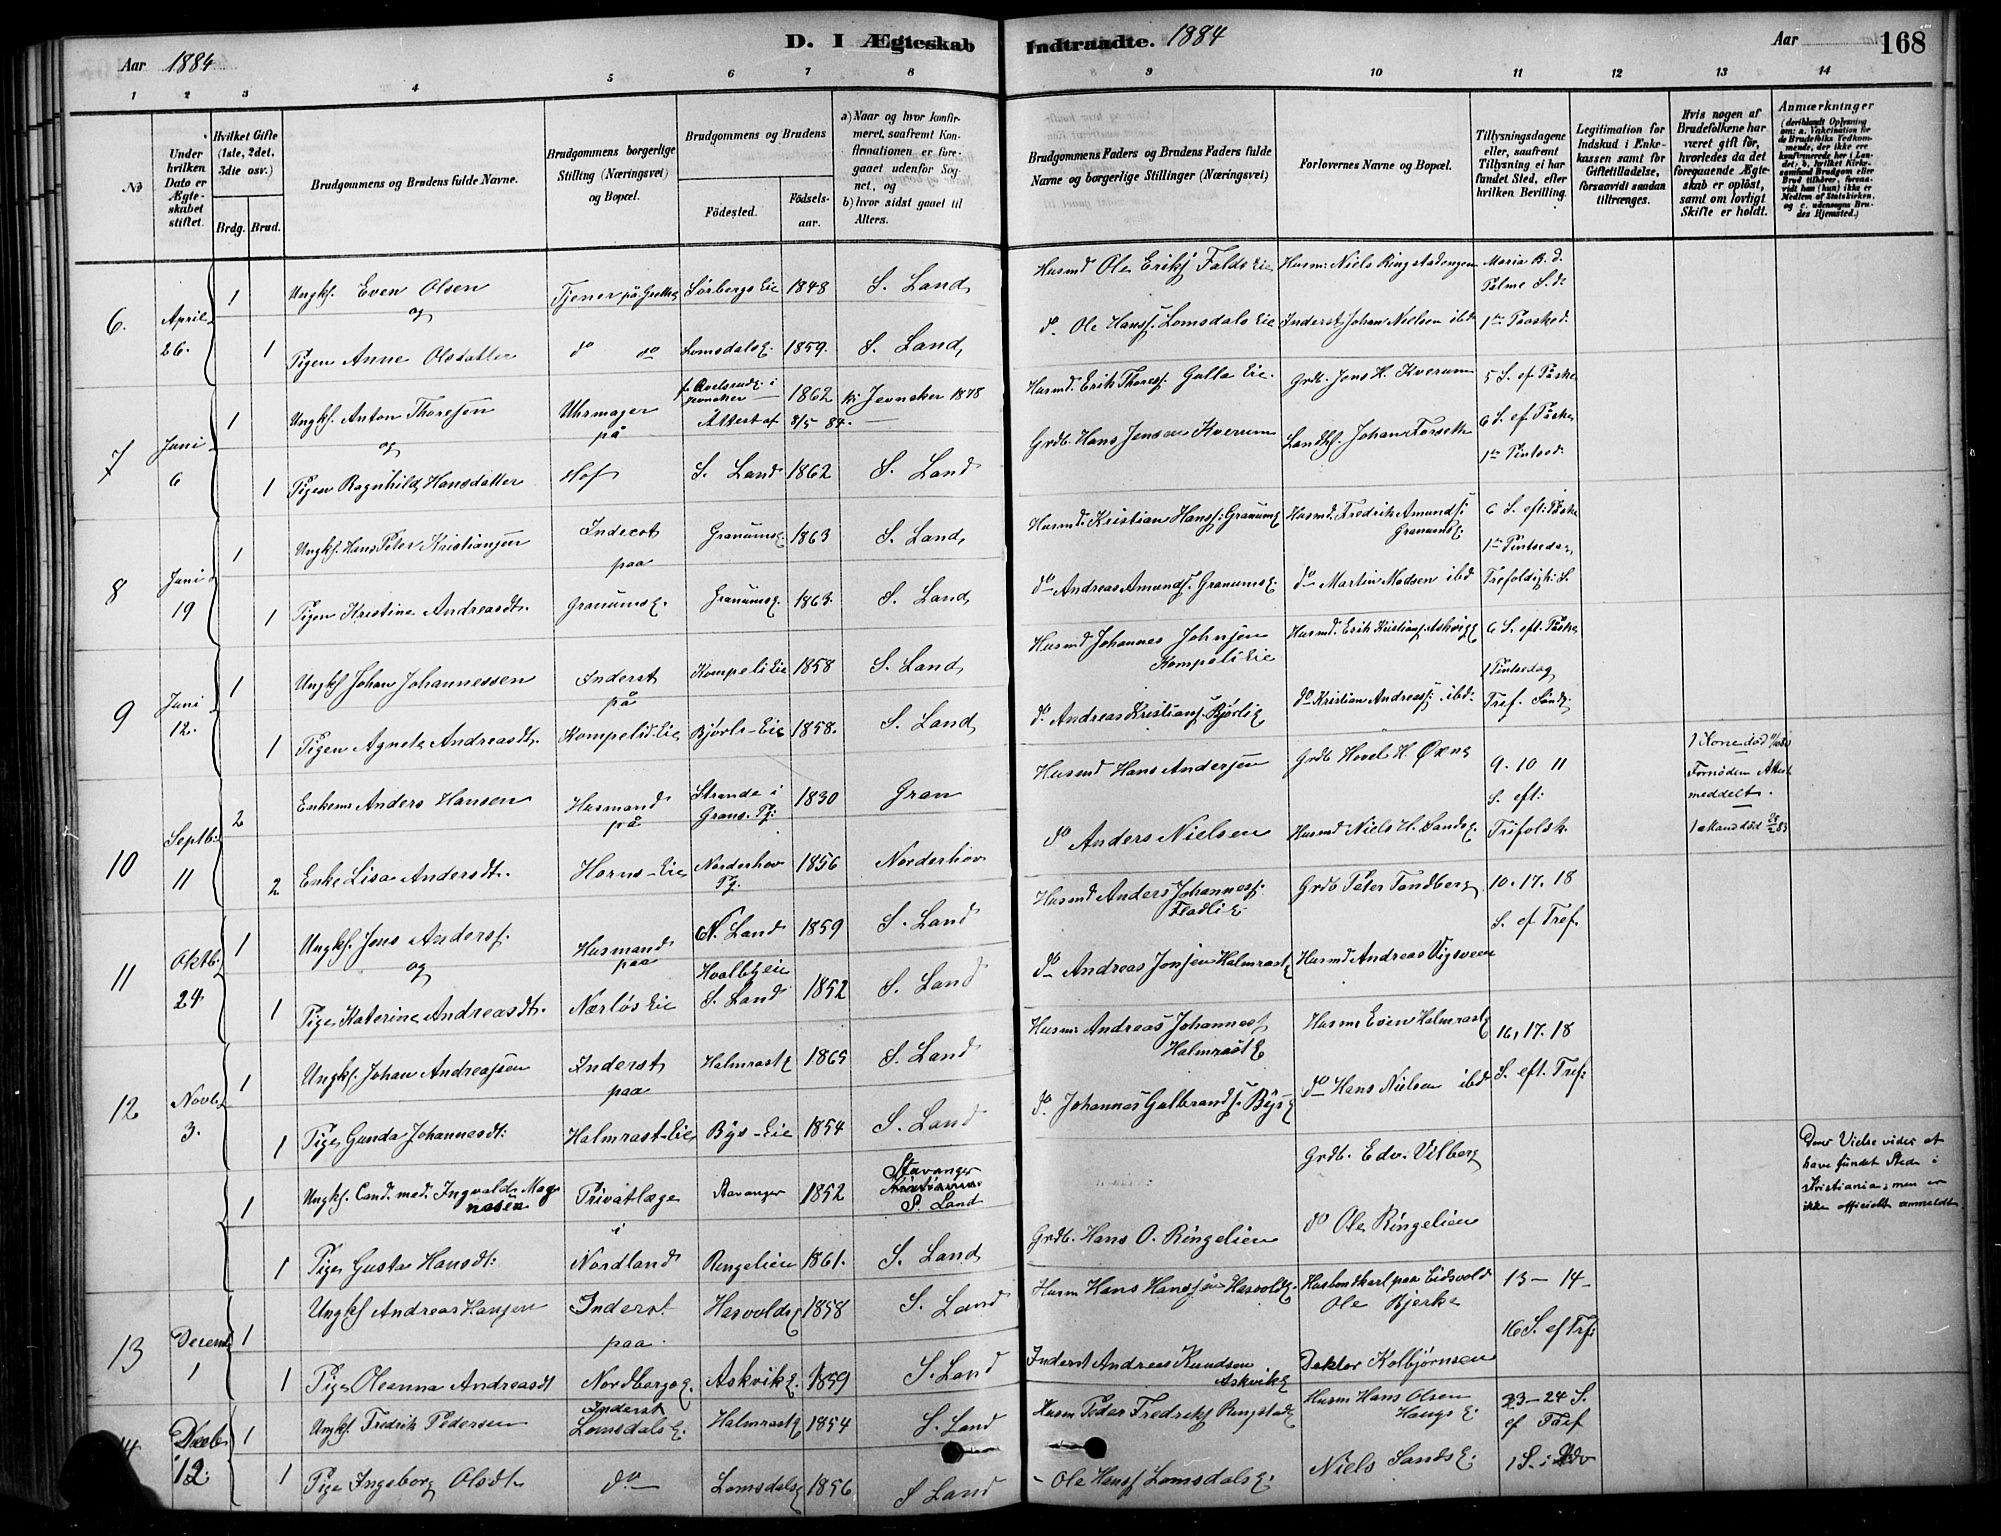 D. I Ægteskab Indtraadte. 1884
Aar 1884
Aar
168
1 2 3 4 5 6 7 8 9 10 11 12 13 14
No
Under hvilken Dato er Ægteskabet stiftet.
Hvilket Gifte (1ste, 2det, 3die osv.)
Brdg. Brud.
Brudgommens og Brudens fulde Navne.
Brudgommens borgerlige Stilling (Næringsvei) og Bopæl.
Brudgommens og Brudens
Fødested.
Fødselsaar.
a) Naar og hvor konfirmeret, saafremt Konfirmationen er foregaaet udenfor Sognet, og
b) hvor sidst gaaet til Alters.
Brudgommens Faders og Brudens Faders fulde Navne og borgerlige Stillinger (Næringsvei)
Forlovernes Navne og Bopæl.
Tillysningsdagene eller, saafremt Tillysning ei har fundet Sted, efter hvilken Bevilling.
Legitimation for Indskud i Enkekassen samt for Giftetilladelse, forsaavidt saadan tiltrænges.
Hvis nogen af Brudefolkene har været gift før, hvorledes da det foregaaende Ægteskab er opløst, samt om lovligt Skifte er holdt.
Anmærkninger (deriblandt Oplysning om: a. Vakcination for de Brudefolks Vedkommende, der ikke ere konfirmerede her i Landet; b. hvilket Kirkesamfund Brudgom eller Brud tilhører, forsaavidt han (hun) ikke er Medlem af Statskirken, og c. udensogns Brudes Hjemsted.)
6. April 26. 1 Ungkf. Even Olsen Tjener på Grette Sörbergs Eie 1848 S. Land Husmd Ole Eriks. Falds Eie Husm: Niels Ringstadengen Maria B. d. Palme S. d:
og
1 Pigen Anne Olsdatter do do Lomsdalse. 1859. S. Land do. Ole Hanss. Lomsdals Eie Inderst Johan Nielsen ibd 1ste Paasked.
7 Juni 6 1 Ungkf. Anton Thoresen Uhrmager på i Jevnaker 1862 k: Jevnaker 1878 Husmd. Erik Thoress. Galla Eie. Grdb. Jens H. Kverum 5 S. ef Påske
Attest af 8/5 84.
og
1 Pigen Ragnhild Hansdatter Hof S. Land 1862 S. Land Grdb. Hans Jensen Kverum Landhf. Johan Forseth 6 S. ef Påske 1ste Pintsed.
8 Juni 19 1 Ungkf. Hans Peter Kristiansen Inderst paa Granumse 1863 S. Land Husmd. Kristian Hanss. Granumse Husmd. Fredrik Amunds. Granumse. 6 S. eft. Påske 1ste Pintsedag
1 Pigen Kristine Andreasdt. Granumse. Granumse. 1863. S. Land do Andreas Amunds. Granumse. do Martin Madsen ibd Trefoldigh: S.
9 Juni 12. 1 Ungkf Johan Johannessen Inderst på Kompeli Eie 1858 S. Land Husmd Johannes Johnsen Kompeli Eie Husmd. Erik Kristians. Askvige 6 S. eft. Påske 1 Pintsedag
1 Pigen Agnete Andreasdt. Kompelid. Eie Bjørli-Eie 1858. S. Land do. Andreas Kristians. Bjørlie do Kristian Andreass. ibd. Tref. Sönd.
10 Septb. 11 2 Enkem Anders Hansen Husmand på Strande i Grans. Pg: 1830 Gran Husmd Hans Andersen Grdb Hovel H. Øxne 9. 10 11 S. eft: 1 Kone död
Fornöden Attest meddelt.
2 Enke Lisa Andersdt. Horns-Eie Norderhov Pg. 1856 Norderhov do Anders Nielsen Husmd Niels H. Sandse. Trifoldh. 1 Mand död
11 Oktb. 24 1 Ungkf. Jens Anderss. Husmand paa N. Land 1859 S. Land Husmd Anders Johanness. Fladlie Grdb Peter Tandberg 10. 17. 18 S. ef Tref.
og
1 Pige Katerine Andreasdt. Nærlös Eie Hvalbyeie S. Land 1852 S. Land do Andreas Jonsen Halmraste Husmd Andreas Vigsveen
12 Novb. 3. 1 Ungkf. Johan Andreassen Inderst paa Halmraste 1865 S. Land Husm: Andreas Johanness Halmraste Husm: Even Halmraste 16, 17. 18 S. eft. Tref:
1 Pige Gunda Johannesdt: Halmrast-Eie Bys-Eie 1854 S. Land do. Johannes Gulbrands. Byse do Hans Nielsen ibd
1 Ungkf. Cand. med. Ingvald Magnesen Privatlæge i Stavanger 1852 Stavanger Kristiania S. Land Grdb. Edv. Vilberg Denne Vielse vides at have fundet Sted i Kristiania; men er ikke officielt anmeldt.
1 Pige Gusta Hansdt: Nordland Ringelien 1861. S. Land Grdb. Hans O. Ringelien do Ole Ringelien
13 Decemb 1 1 Ungkf Andreas Hansen Inderst paa Hasvoldse 1858 S. Land Husm Hans Hansen Hasvolde. Husbondkarl paa Eidsvold Ole Bjerke 13 – 14 – 16 S. ef Tref:
1 Pige Oleanna Andreasdt Nordberge. Askvike. 1859 S. Land Inderst Andreas Knudsen Askvike Doktor Kolbjørnsen
14 Decb 12. 1 Ungkf. Fredrik Pedersen Inderst Lomsdalse. Halmraste 1854 S. Land Husm Peder Fredriks Ringstade Husm Hans Olsen Haugse. 23 – 24 S. ef Tref
1 Pige Ingeborg Olsdt do Lomsdalse 1856 S Land – Ole Hanss Lomsdalse. Niels Sandse. 1 S. i Adv